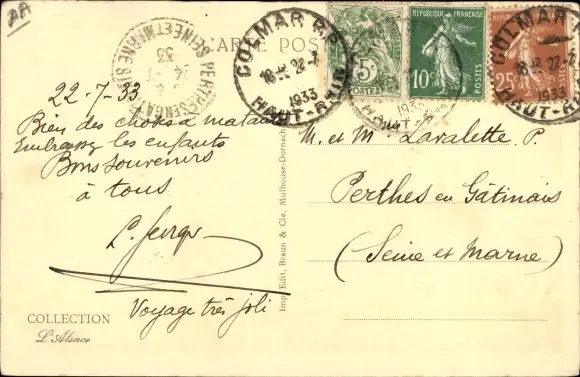 AA
CARTE POSTALE
COLMAR R.P.
18 H 22-7
1933
HAUT-RHIN
5c
POSTES
RÉPUBLIQUE FRANÇAISE
10c
POSTES
25c
COLMAR
18 H 22-7
1933
HAUT-RHIN
PERTHES EN GATINAIS
SEINE ET MARNE
33
22-7-33
Bien des choses à ma tante
Embrassez les enfants
Bons souvenirs
à tous
Voyage très joli
M. et Mme Lavalette P.
Perthes en Gâtinais
(Seine et Marne)
Imp. Edit. Braun & Cie, Mulhouse-Dornach
COLLECTION
L'Alsace